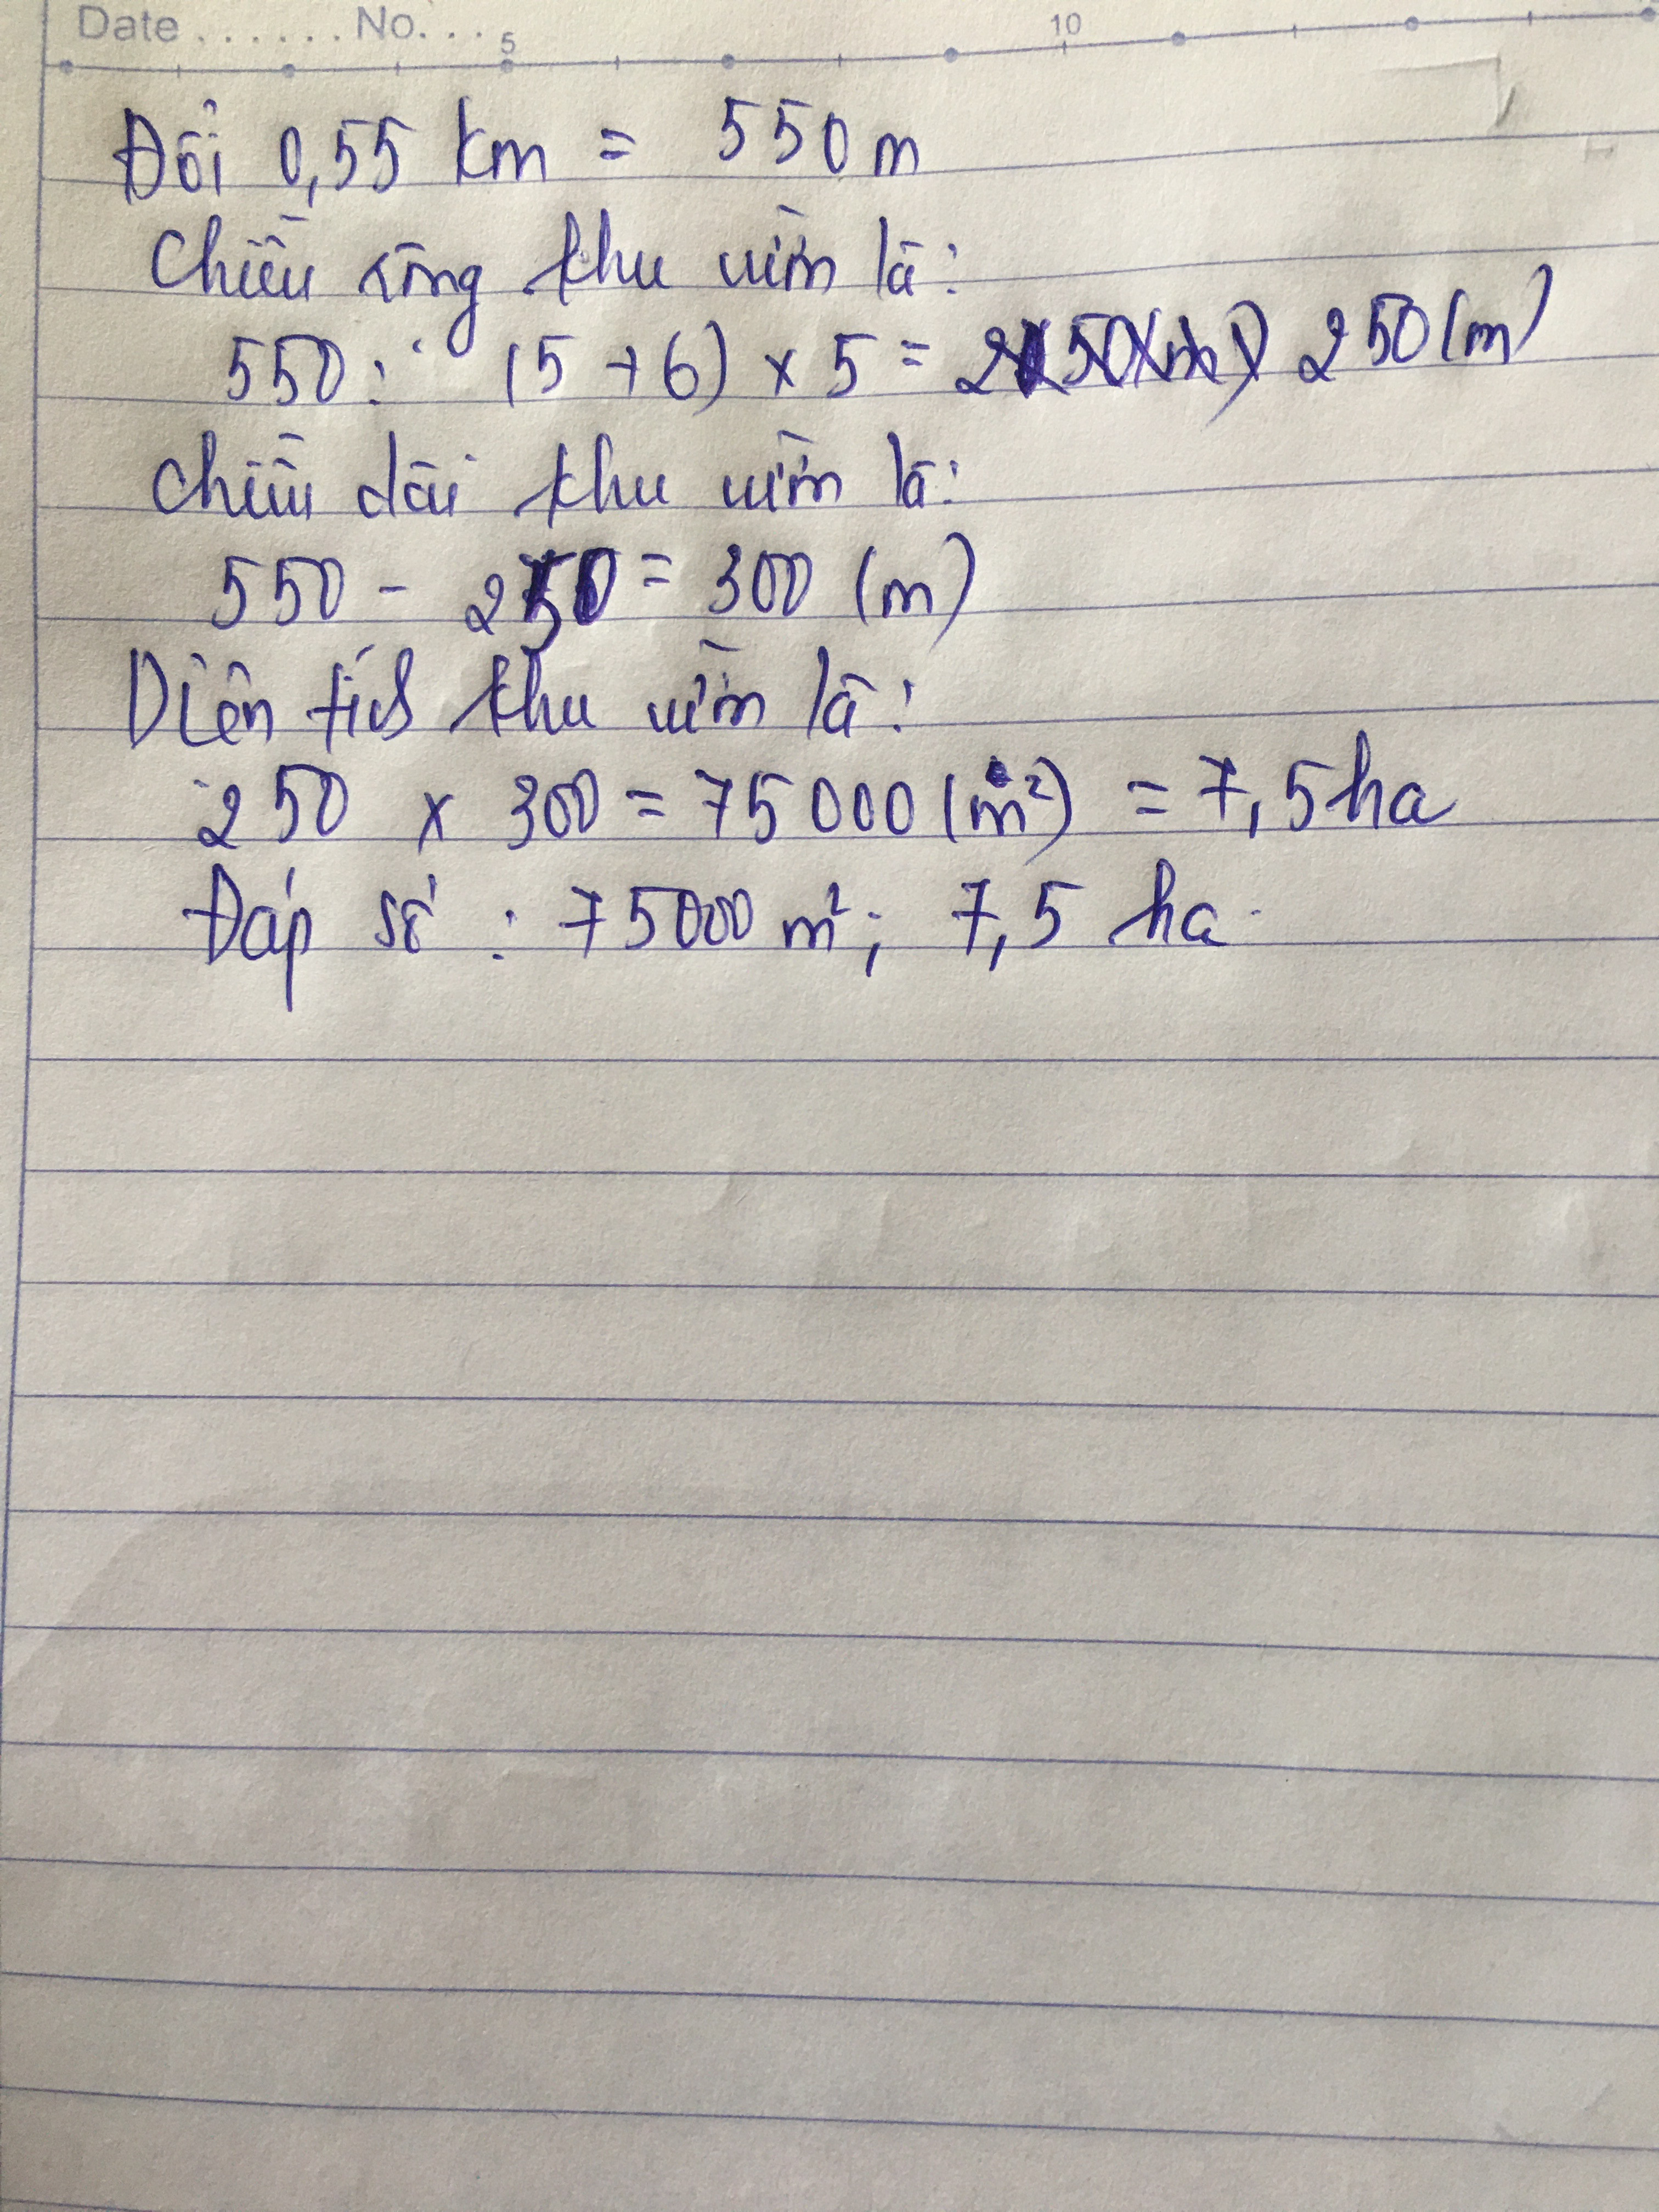 Date ...... No. ... 5 10
Đổi 0,55 km = 550 m
Chiều rộng khu vườn là:
550 : (5 + 6) x 5 = 250 (m)
Chiều dài khu vườn là:
550 - 250 = 300 (m)
Diện tích khu vườn là:
250 x 300 = 75000 (m²) = 7,5 ha
Đáp số : 75000 m²; 7,5 ha